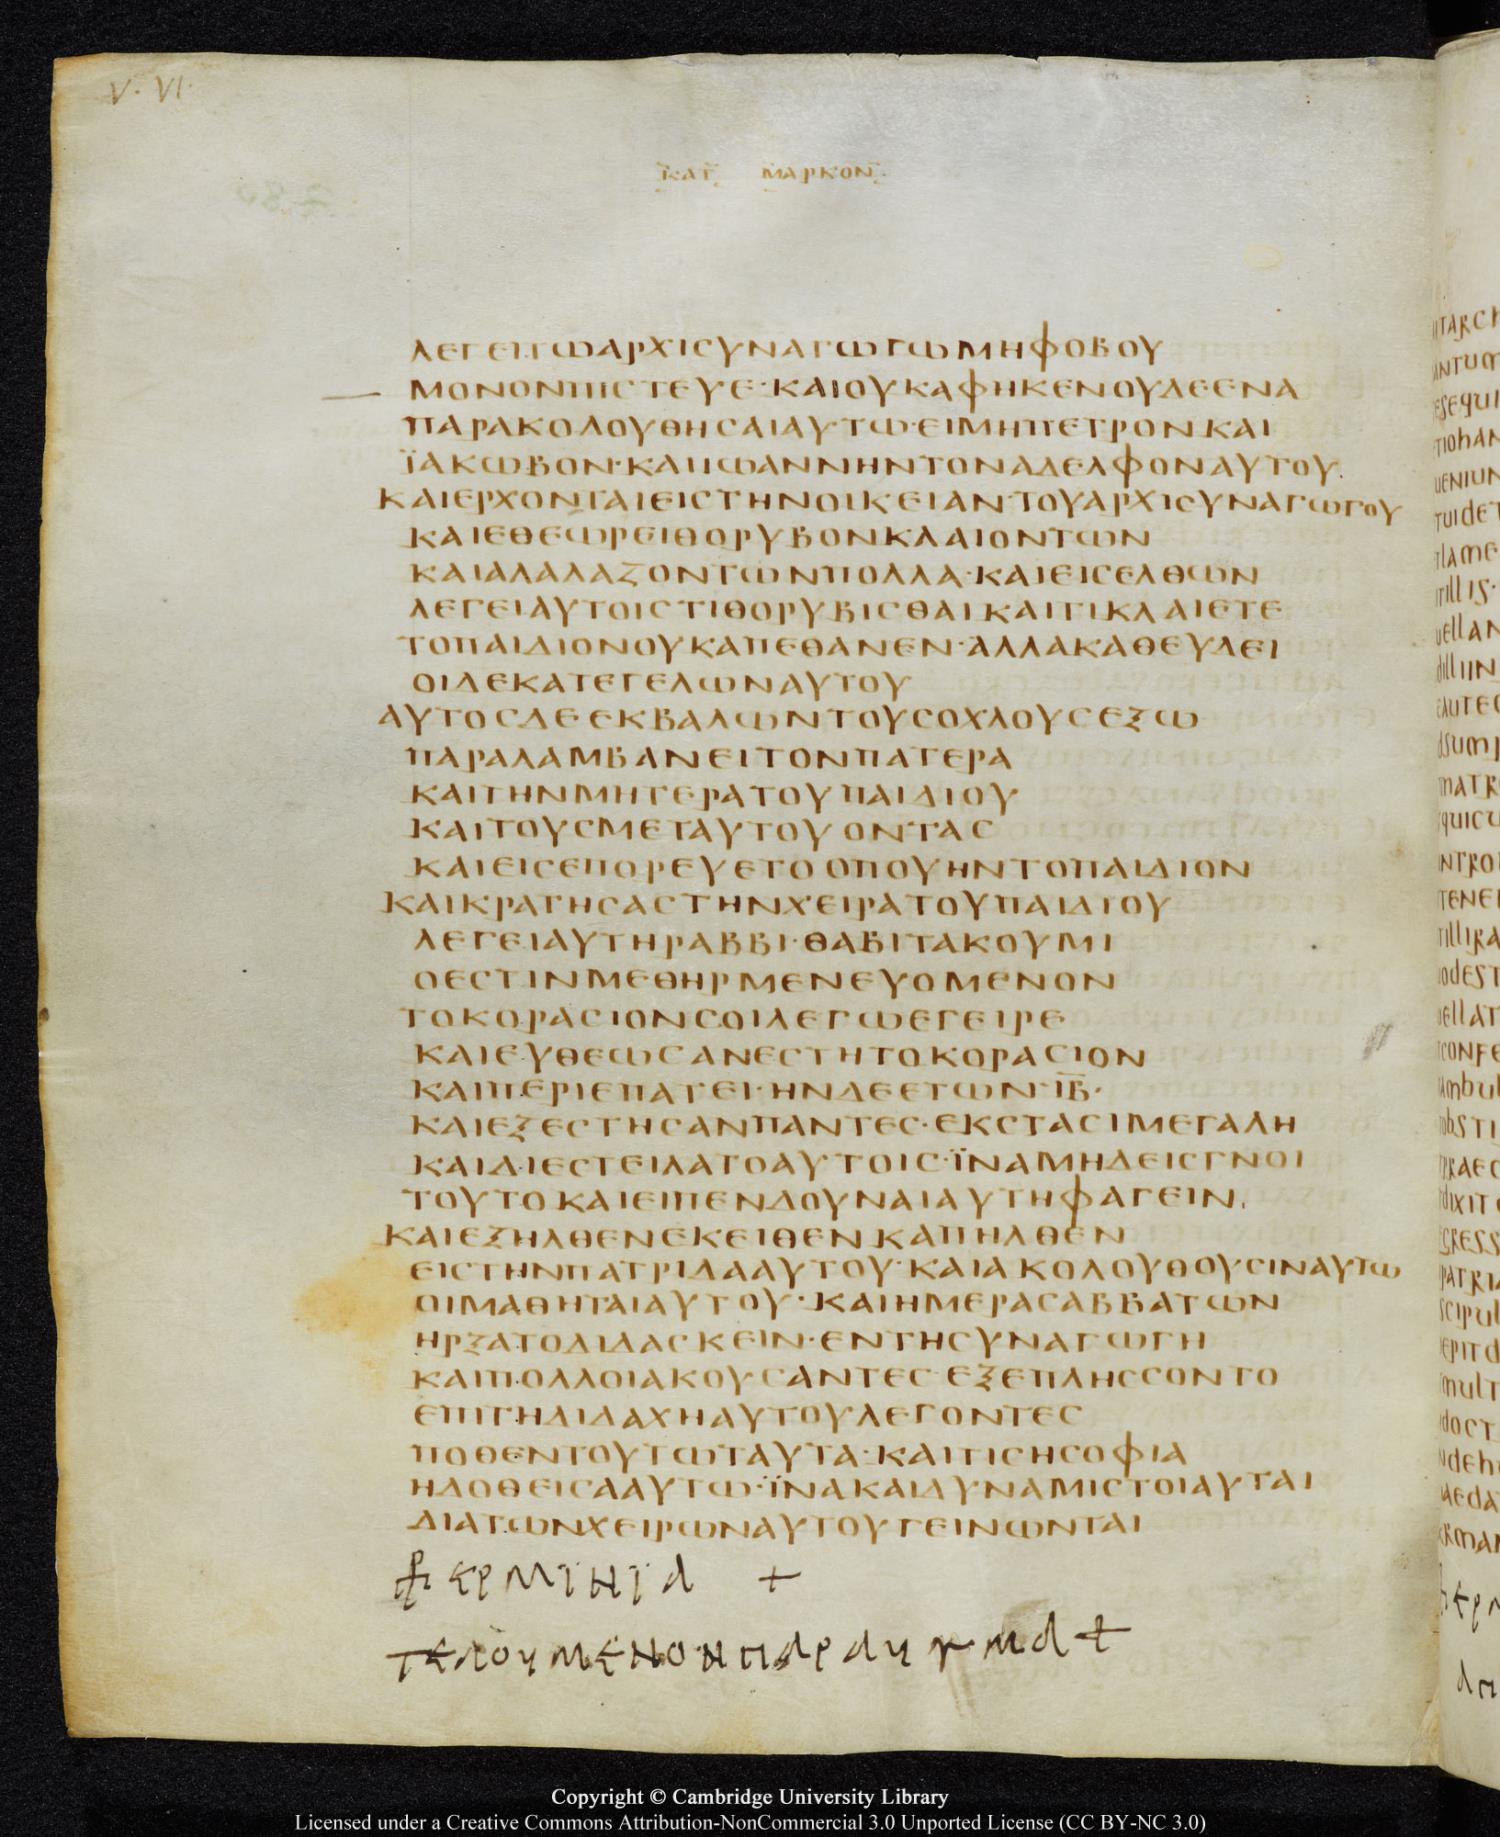 V · VI
ΚΑΤ ΜΑΡΚΟΝ
ΛΕΓΕΙΤΩΑΡΧΙΣΥΝΑΓΩΓΩΜΗΦΟΒΟΥ
ΜΟΝΟΝΠΙΣΤΕΥΕ·ΚΑΙΟΥΚΑΦΗΚΕΝΟΥΔΕΕΝΑ
ΠΑΡΑΚΟΛΟΥΘΗΣΑΙΑΥΤΩ·ΕΙΜΗΠΕΤΡΟΝΚΑΙ
ΪΑΚΩΒΟΝ·ΚΑΙΙΩΑΝΝΗΝΤΟΝΑΔΕΛΦΟΝΑΥΤΟΥ
ΚΑΙΕΡΧΟΝΤΑΙΕΙΣΤΗΝΟΙΚΕΙΑΝ·ΤΟΥΑΡΧΙΣΥΝΑΓΩΓΟΥ
ΚΑΙΕΘΕΩΡΕΙΘΟΡΥΒΟΝΚΛΑΙΟΝΤΩΝ
ΚΑΙΑΛΑΛΑΖΟΝΤΩΝΠΟΛΛΑ·ΚΑΙΕΙΣΕΛΘΩΝ
ΛΕΓΕΙΑΥΤΟΙΣΤΙΘΟΡΥΒΙΣΘΑΙΚΑΙΤΙΚΛΑΙΕΤΕ
ΤΟΠΑΙΔΙΟΝΟΥΚΑΠΕΘΑΝΕΝ·ΑΛΛΑΚΑΘΕΥΔΕΙ
ΟΙΔΕΚΑΤΕΓΕΛΩΝΑΥΤΟΥ
ΑΥΤΟΣΔΕΕΚΒΑΛΩΝΤΟΥΣΟΧΛΟΥΣΕΞΩ
ΠΑΡΑΛΑΜΒΑΝΕΙΤΟΝΠΑΤΕΡΑ
ΚΑΙΤΗΝΜΗΤΕΡΑΤΟΥΠΑΙΔΙΟΥ
ΚΑΙΤΟΥΣΜΕΤΑΥΤΟΥΟΝΤΑΣ
ΚΑΙΕΙΣΕΠΟΡΕΥΕΤΟΟΠΟΥΗΝΤΟΠΑΙΔΙΟΝ
ΚΑΙΚΡΑΤΗΣΑΣΤΗΝΧΕΙΡΑΤΟΥΠΑΙΔΙΟΥ
ΛΕΓΕΙΑΥΤΗΡΑΒΒΙ·ΘΑΒΙΤΑΚΟΥΜΙ
ΟΕΣΤΙΝΜΕΘΗΡΜΕΝΕΥΟΜΕΝΟΝ
ΤΟΚΟΡΑΣΙΟΝΣΟΙΛΕΓΩΕΓΕΙΡΕ
ΚΑΙΕΥΘΕΩΣΑΝΕΣΤΗΤΟΚΟΡΑΣΙΟΝ
ΚΑΙΠΕΡΙΕΠΑΤΕΙ·ΗΝΔΕΕΤΩΝ·ΙΒ·
ΚΑΙΕΞΕΣΤΗΣΑΝΠΑΝΤΕΣ·ΕΚΣΤΑΣΙΜΕΓΑΛΗ
ΚΑΙΔΙΕΣΤΕΙΛΑΤΟΑΥΤΟΙΣ·ΪΝΑΜΗΔΕΙΣΓΝΟΙ
ΤΟΥΤΟΚΑΙΕΙΠΕΝΔΟΥΝΑΙΑΥΤΗΦΑΓΕΙΝ
ΚΑΙΕΞΗΛΘΕΝΕΚΕΙΘΕΝΚΑΠΗΛΘΕΝ
ΕΙΣΤΗΝΠΑΤΡΙΔΑΑΥΤΟΥ·ΚΑΙΑΚΟΛΟΥΘΟΥΣΙΝΑΥΤΩ
ΟΙΜΑΘΗΤΑΙΑΥΤΟΥ·ΚΑΙΗΜΕΡΑΣΑΒΒΑΤΩΝ
ΗΡΞΑΤΟΔΙΔΑΣΚΕΙΝ·ΕΝΤΗΣΥΝΑΓΩΓΗ
ΚΑΙΠΟΛΛΟΙΑΚΟΥΣΑΝΤΕΣΕΞΕΠΛΗΣΣΟΝΤΟ
ΕΠΙΤΗΔΙΔΑΧΗΑΥΤΟΥΛΕΓΟΝΤΕΣ
ΠΟΘΕΝΤΟΥΤΩΤΑΥΤΑ·ΚΑΙΤΙΣΗΣΟΦΙΑ
ΗΔΟΘΕΙΣΑΑΥΤΩ·ΪΝΑΚΑΙΔΥΝΑΜΙΣΤΟΙΑΥΤΑΙ
ΔΙΑΤΩΝΧΕΙΡΩΝΑΥΤΟΥΓΕΙΝΩΝΤΑΙ
ΕΡΜΪΗΪΑ +
ΤΕΛΟΥΜΕΝΟΝΠΑΡΑΥΓΜΑ +
Copyright © Cambridge University Library
Licensed under a Creative Commons Attribution-NonCommercial 3.0 Unported License (CC BY-NC 3.0)